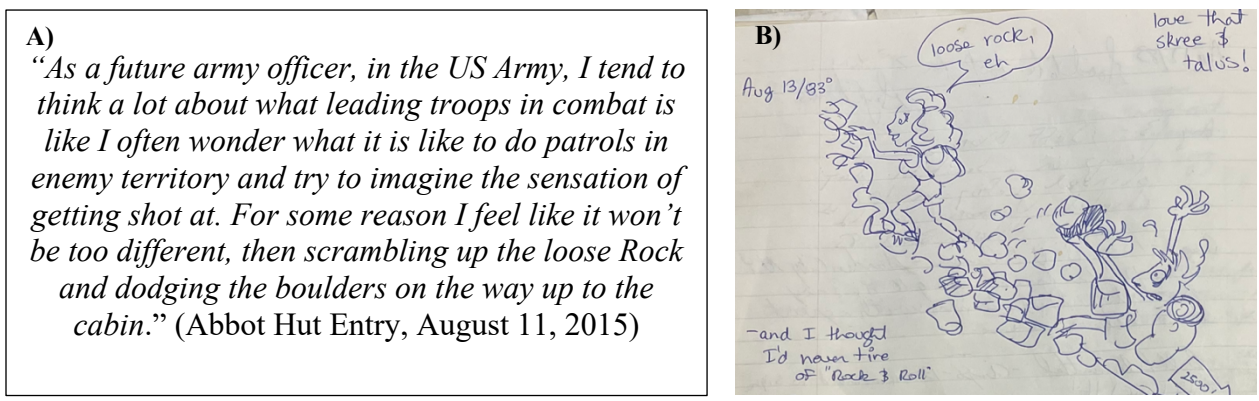 A)
“As a future army officer, in the US Army, I tend to
think a lot about what leading troops in combat is
like I often wonder what it is like to do patrols in
enemy territory and try to imagine the sensation of
getting shot at. For some reason I feel like it won’t
be too different, then scrambling up the loose Rock
and dodging the boulders on the way up to the
cabin.” (Abbot Hut Entry, August 11, 2015)
B)
loose rock,
eh
love that
skree &
talus!
Aug 13/83°
-and I thought
I'd never tire
of "Rock & Roll"
2500'